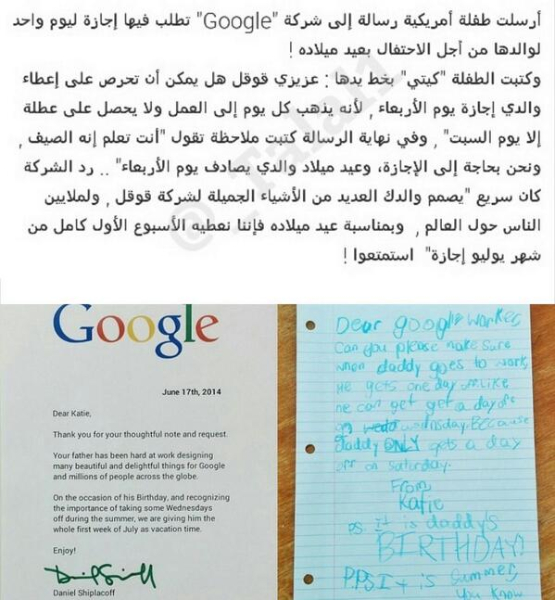 أرسلت طفلة أمريكية رسالة إلى شركة "Google" تطلب فيها إجازة ليوم واحد
لوالدها من أجل الاحتفال بعيد ميلاده !
وكتبت الطفلة "كيتي" بخط يدها : عزيزي قوقل هل يمكن أن تحرص على إعطاء
والدي إجازة يوم الأربعاء , لأنه يذهب كل يوم إلى العمل ولا يحصل على عطلة
إلا يوم السبت" , وفي نهاية الرسالة كتبت ملاحظة تقول "أنت تعلم إنه الصيف ,
ونحن بحاجة إلى الإجازة، وعيد ميلاد والدي يصادف يوم الأربعاء" .. رد الشركة
كان سريع "يصمم والدك العديد من الأشياء الجميلة لشركة قوقل , ولملايين
الناس حول العالم , وبمناسبة عيد ميلاده فإننا نعطيه الأسبوع الأول كامل من
شهر يوليو إجازة" استمتعوا !
Google
June 17th, 2014
Dear Katie,
Thank you for your thoughtful note and request.
Your father has been hard at work designing
many beautiful and delightful things for Google
and millions of people across the globe.
On the occasion of his Birthday, and recognizing
the importance of taking some Wednesdays
off during the summer, we are giving him the
whole first week of July as vacation time.
Enjoy!
Daniel Shiplacoff
Dear google worker,
Can you please make sure
when daddy goes to work,
He gets one day off. Like
he can get get a day off
on wednsday. BECAUSE
daddy ONLY gets a day
off on saturday.
From,
Katie
P.S. It is daddy's
BIRTHDAY!
P.P.S. It is summer,
you know